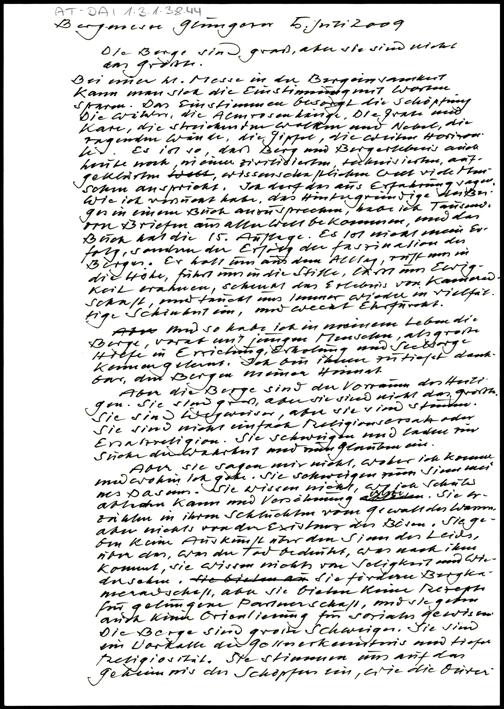 AT-DA 1.3.1.38.44
Bergmesse Glungezer 5. Juli 2009
Die Berge sind groß, aber sie sind nicht
das Größte.
Bei einer hl. Messe in der Bergeinsamkeit
kann man sich die Einstimmung mit Worten
sparen. Das Einstimmen besorgt die Schöpfung
Die Wälder, die Almrosenhänge. Die Grate und
Kare, die streichenden Wolken und Nebel, die
ragenden Wände, die Gipfel, die weiten Horizon-
te. Es ist so, daß Berg und Bergerlebnis auch
heute noch, in einer zivilisierten, technisierten, auf-
geklärten, wissenschaftlichen Welt viele Men-
schen anspricht. Ich darf das aus Erfahrung sagen.
Wie ich versucht habe, das Hintergründige des Ber-
ges in einem Buch auszusprechen, habe ich Tausende
von Briefen aus aller Welt bekommen, und das
Buch hat die 15. Auflage. Es ist nicht mein Er-
folg, sondern der Erfolg der Faszination des
Berges. Er holt uns aus dem Alltag, ruft uns in
die Höhe, führt uns in die Stille, lässt uns Ewig-
keit erahnen, schenkt das Erlebnis von Kamerad-
schaft, und taucht uns immer wieder in vielfäl-
tige Schönheit ein, und weckt Ehrfurcht.
Und so habe ich in meinem Leben die
Berge, vorab mit jungen Menschen, als große
Hilfe in Erziehung, Erholung und Seelsorge
kennengelernt. Ich bin ihnen zutiefst dank-
bar, den Bergen meiner Heimat
Aber die Berge sind der Vorraum des Heili-
gen. Sie sind groß, aber sie sind nicht das Größte.
Sie sind Wegweiser, aber sie sind stumm.
Sie sind nicht einfach Religionsersatz oder
Ersatzreligion. Sie schweigen und laden zur
Suche der Wahrheit und zum Glauben ein.
Aber sie sagen mir nicht, woher ich komme
und wohin ich gehe. Sie schweigen zum Sinn mei-
nes Daseins. Sie wissen nicht, wo ich Schuld
abladen kann und Versöhnung. Sie er-
zählen in ihren Schluchten vom Gewalt des Wassers
aber nichts von der Existenz des Bösen. Sie ge-
ben keine Auskunft über den Sinn des Leids,
über das, was der Tod bedeutet, was nach ihm
kommt, sie wissen nichts von Seligkeit und Wie-
dersehen. Sie fördern Bergka-
meradschaft, aber sie bieten keine Rezepte
für gelungene Partnerschaft, und sie geben
auch keine Orientierung für soziales Gewissen
Die Berge sind große Schweiger. Sie sind
ein Vorhalle der Gotteserkenntnis und tiefer
Religiosität. Sie stimmen uns auf das
Geheimnis des Schöpfers ein, wie die